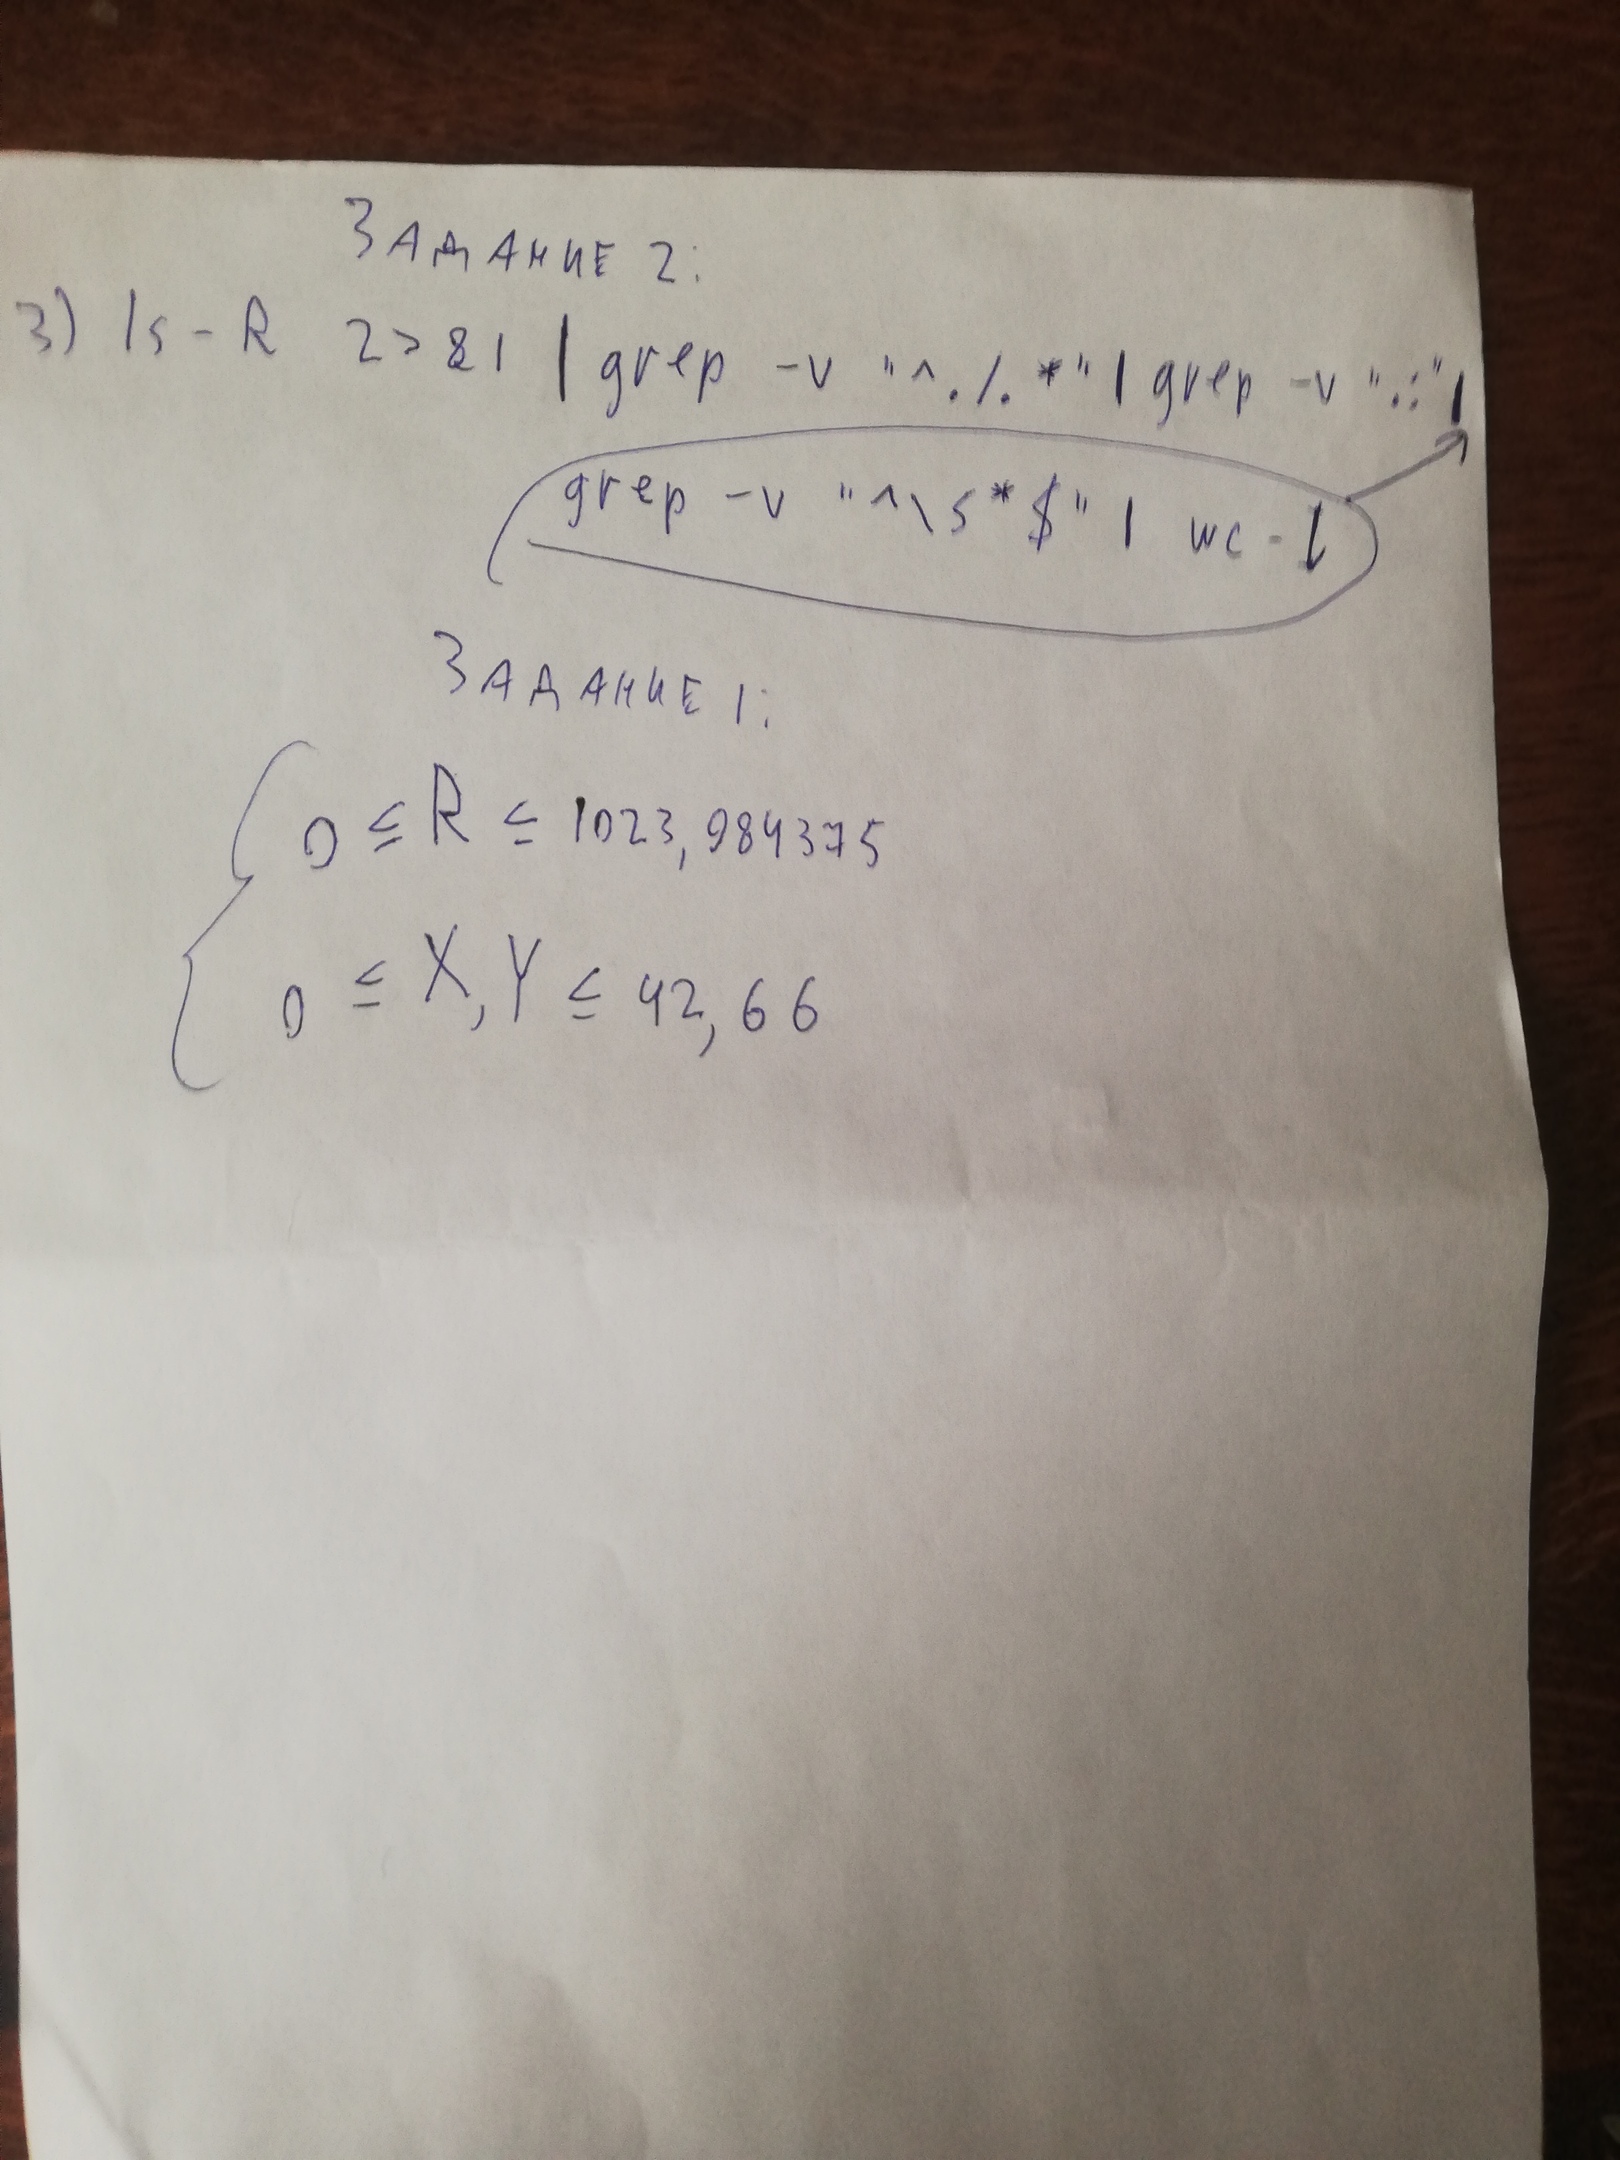 ЗАДАНИЕ 2:
3) ls -R 2>&1 | grep -v "^./.*" | grep -v ".:" |
grep -v "^\s*$" | wc -l
ЗАДАНИЕ 1:
0 ≤ R ≤ 1023,984375
0 ≤ X, Y ≤ 42,66